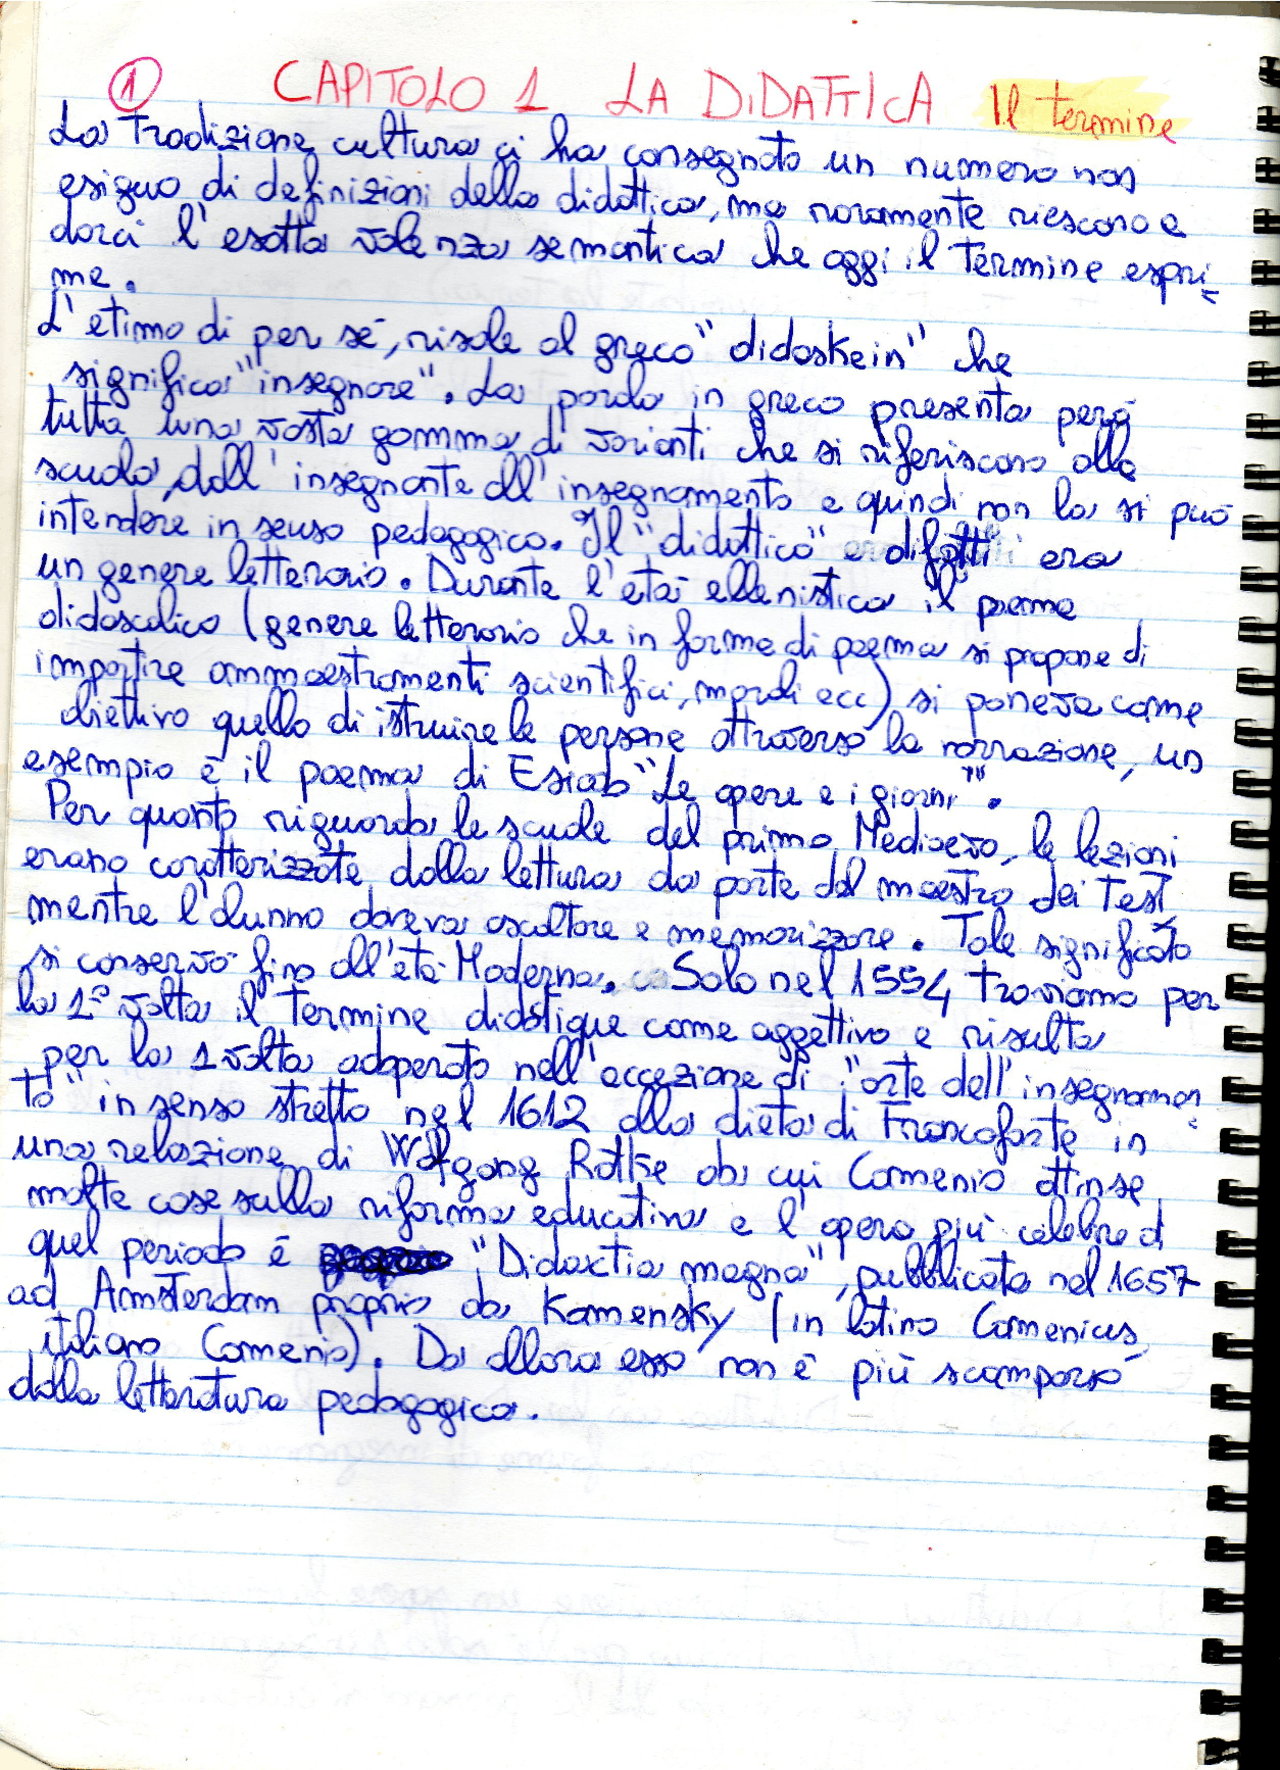 1 CAPITOLO 1 LA DIDATTICA Il termine
La Tradizione cultura ci ha consegnato un numero non
esiguo di definizioni della didattica, ma raramente riescono a
darci l'esatta valenza semantica che oggi il termine espri-
me.
L'etimo di per sé, risale al greco "didaskein" che
significa "insegnare". La parola in greco presenta però
tutta una vasta gamma di varianti che si riferiscono alla
scuola, dall'insegnante all'insegnamento e quindi non la si può
intendere in senso pedagogico. Il "didattico" difatti era
un genere letterario. Durante l'età ellenistica il poema
didascalico (genere letterario che in forma di poema si propone di
impartire ammaestramenti scientifici, morali ecc) si poneva come
obiettivo quello di istruire le persone attraverso la narrazione, un
esempio è il poema di Esiodo "Le opere e i giorni".
Per quanto riguarda le scuole del primo Medioevo, le lezioni
erano caratterizzate dalla lettura da parte del maestro dei Testi
mentre l'alunno doveva ascoltare e memorizzare. Tale significato
si conservò fino all'età Moderna. Solo nel 1554 troviamo per
la 1ª volta il Termine didatique come aggettivo e risulta
per la 1 volta adoperato nell'accezione di "arte dell'insegnamen
to" in senso stretto nel 1612 alla dieta di Francoforte in
una relazione di Wolfgang Ratke da cui Comenio attinse
molte cose sulla riforma educativa e l'opera più celebre di
quel periodo è "Didactia magna", pubblicata nel 1657
ad Amsterdam proprio da Kamensky (in latino Comenius,
italiano Comenio). Da allora esso non è più scomparso
dalla letteratura pedagogica.